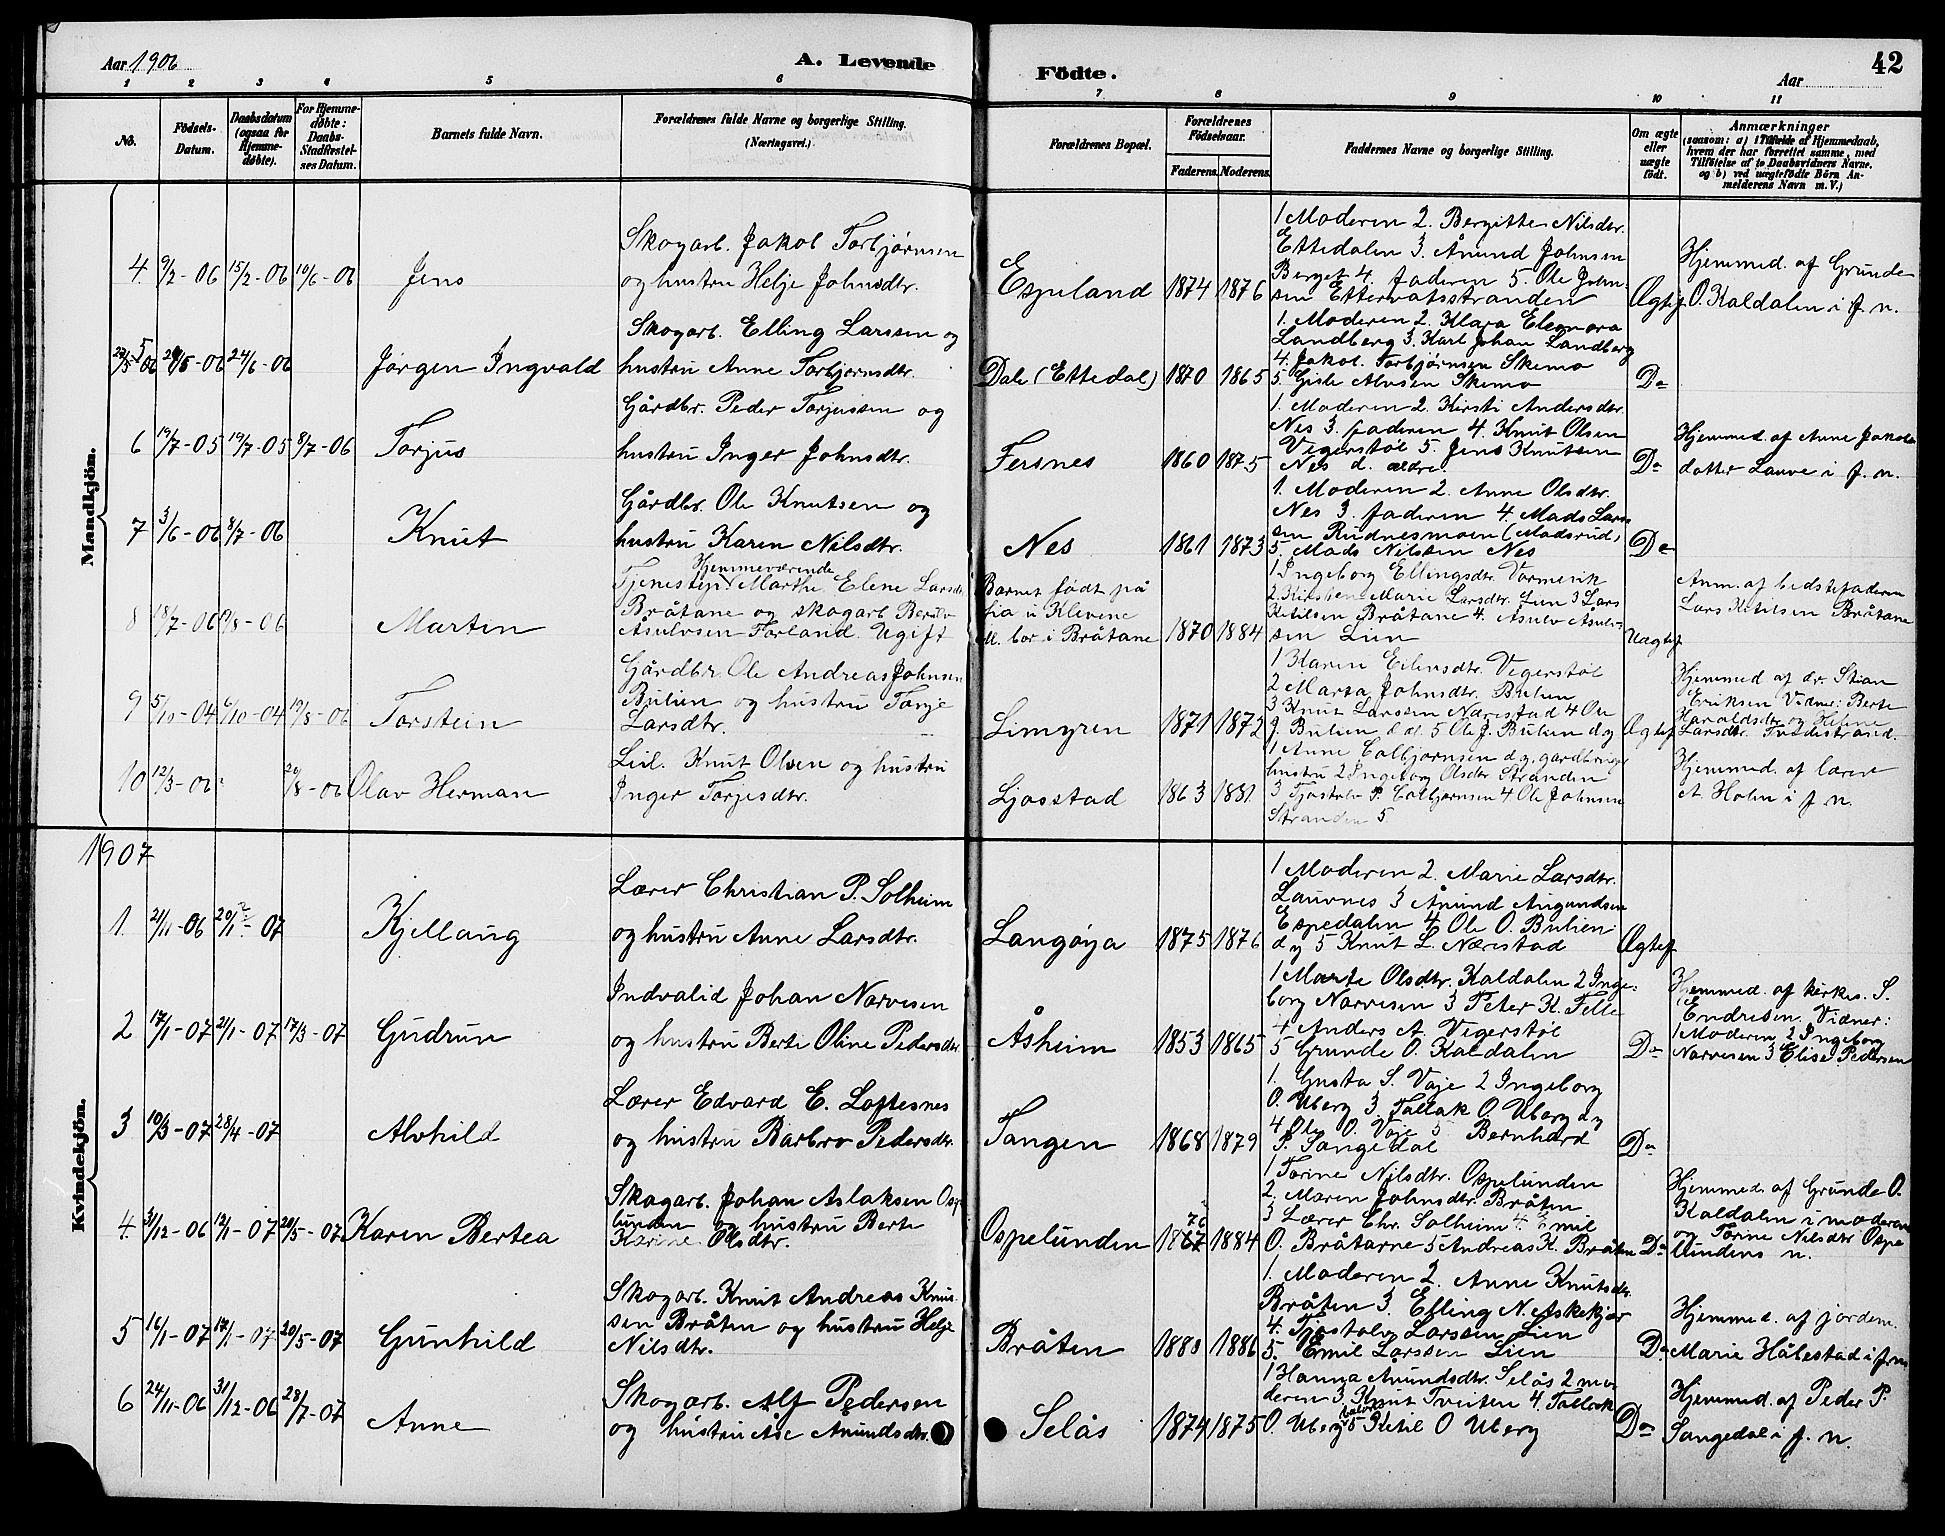 Aar 1906
A. Levende
Fødte.
Aar
42
1 2 3 4 5 6 7 8 9 10 11
No.
Fødsels-
Datum.
Daabsdatum
(ogsaa for
Hjemme-
døbte).
For Hjemme-
døbte:
Daabs-
Stadfæstel-
ses Datum.
Barnets fulde Navn.
Forældrenes fulde Navne og borgerlige Stilling.
(Næringsvei.)
Forældrenes Bopæl.
Forældrenes
Fødselsaar.
Faderens. Moderens.
Faddernes Navne og borgerlige Stilling.
Om ægte
eller
uægte
født.
Anmærkninger
(saasom: a) i Tilfælde af Hjemmedaab,
hvem der har forrettet samme, med
Tilføielse af to Daabsvidners Navne.
og b) ved uægtefødte Børn An-
melderens Navn m. V.)
Mandkjön.
4. 9/2-06 15/2-06 10/6-06
Jens
Skogarb. Jakob Torbjørnsen
og hustru Helje Johnsdtr.
Espeland
1874 1876
1 Moderen 2. Bergitte Nilsdtr.
Ettedalen 3. Ånund Johnsen
Berget 4. faderen 5. Ole John-
sen Ettervatsstranden
Ægtef
Hjemmed. af Grunde
O. Kaldalen i f. n.
5 24/6-06
Jørgen Ingvald
Skogarb. Elling Larssen og
hustru Anne Torbjørnsdtr.
Dale (Ettedal)
1870 1865
1. Moderen 2. Klara Eleonora
Landberg 3. Karl Johan Landberg
4. Jakob Torbjørnsen Skemo
5. Gisle Alvsen Skemo
Do
6 19/7-05 19/7-05 8/7-06
Torjus
Gårdbr. Peder Torjussen og
hustru Inger Johnsdtr.
Fersnes
1860 1875
1. Moderen 2. Kirsti Andersdtr.
Nes 3. faderen 4. Knut Olsen
Vegerstøl 5. Jens Knutsen
Nes d. ældre
Do
Hjemmed. af Anne Jakobs
datter Lauve i f. n.
7 3/6-06 8/7-06
Knut
Gårdbr. Ole Knutsen og
hustru Karen Nilsdtr.
Nes
1861 1873
1. Moderen 2. Anne Olsdtr.
Nes 3. faderen 4. Mads Lars
sen Rudnesmoen (Madsrud)
5. Mads Nilssen Nes
Do
8 18/7-06
Marten
Hjemmeværende
Tjenestep. Marthe Elene Larsdtr
Bråtane og skogarb. Bersulv
Åsulvsen Førland. Ugift
Barnet født på
Lia u Klevene
M. bor i Bråtane
1870 1884
1 Ingeborg Ellingsdtr. Vormevik
2 Kirstene Marie Larsdtr. Lien 3 Lars
Ketilsen Bråtane 4. Åsulv Åsulv-
sen Lien
Uægtef
Anm. af bedstefaderen
Lars Ketilsen Bråtane
9 5/10-04 6/10-04 19/8-06
Torstein
Gårdbr. Ole Andreas Johnsen
Bulien og hustru Torje
Larsdtr.
Limyren
1871 1872
1 Karen Eilensdtr. Vegerstøl
2 Marta Johnsdtr. Bulien
3 Knut Larssen Nærestad 4 Ole
J. Bulien d.æ. 5 Ole J. Bulien d y
Ægtef
Hjemmed af dr. Stian
Eriksen Vidne: Berte
Haraldsdtr og Helene
Larsdtr. Tvedestrand.
10 12/3-06 20/8-06
Olav Herman
Leil. Knut Olsen og hustru
Inger Torjesdtr.
Ljosstad
1863 1881
1 Anne Colbjørnsen d.y. gardbruger
hustru 2 Ingeborg Olsdtr Stranden
3 Tjostolv P. Colbjørnsen 4 Ole Johnsen
Stranden 5.
Hjemmed. af lærer
A. Holm i f. n.
1907
Kvindekjön.
1. 21/11-06 20/1-07
Kjellaug
Lærer Christian P. Solheim
og hustru Anne Larsdtr.
Langøya
1875 1876
1 Moderen 2. Marie Larsdtr.
Lauvnes 3 Ånund Ångundsen
Espedalen 4 Ole O. Bulien
d y 5 Knut L. Nærestad
Ægtef
2 17/1-07 21/1-07 17/3-07
Gudrun
Indvalid Johan Narvesen
og hustru Berte Oline Pedersdtr.
Åsheim
1853 1865
1 Marte Olsdtr. Kaldalen 2 Inge-
borg Narvesen 3 Peter K. Felle
4 Anders A Vegerstøl
5 Grunde O. Kaldalen
Do
Hjemmed. af kirkes. S.
Endresen. Vidner:
1 Moderen 2 Ingeborg
Narvesen 3 Elise Pedersen
3 10/3-07 28/4-07
Alvhild
Lærer Edvard E. Loftesnes
og hustru Barbro Pedersdtr.
Tangen
1868 1879
1. Gusta S. Vaje 2 Ingeborg
O. Uberg 3. Tallak O. Uberg d y
4 Ole O. Vaje 5 Bernhard
P. Sangedal
Do
4. 31/12-06 12/1-07 20/5-07
Karen Bertea
Skogarb. Johan Aslaksen Osp
lunden og hustru Berte
Karine Olsdtr.
Ospelunden
76
1867 1884
1 Torine Nilsdtr. Ospelunden
2. Maren Johnsdtr. Bråten
3 Lærer Chr. Solheim 4. Emil
O. Bråtarne 5 Andreas K. Bråten
Do
Hjemmed. af Grunde O.
Kaldalen i moderens
og Torine Nilsdtr Ospe
lundens n.
5 16/1-07 17/1-07 20/5-07
Gunhild
Skogarb. Knut Andreas Knut-
sen Bråten og hustru Helje
Nilsdtr.
Bråten
1880 1886
1. Moderen 2. Anne Knutsdtr.
Bråten 3. Elling N. Askekjær
4. Tjostolv Larssen Lien
5. Emil Larssen Lien
Do
Hjemmed. af jordem.
Marie Håbestad i f. n.
6 24/11-06 31/12-06 28/7-07
Anne
Skogarb. Alf Pedersen
og hustru Åse Anundsdtr.
Selås
1874 1875
1 Hanna Anundsdtr. Selås 2 mo
deren 3. Knut Tveiten 4. Tallak
O. Uberg 5 Ketil O Uberg
Do
Hjemmed. af Peder P.
Sangedal i f. n.